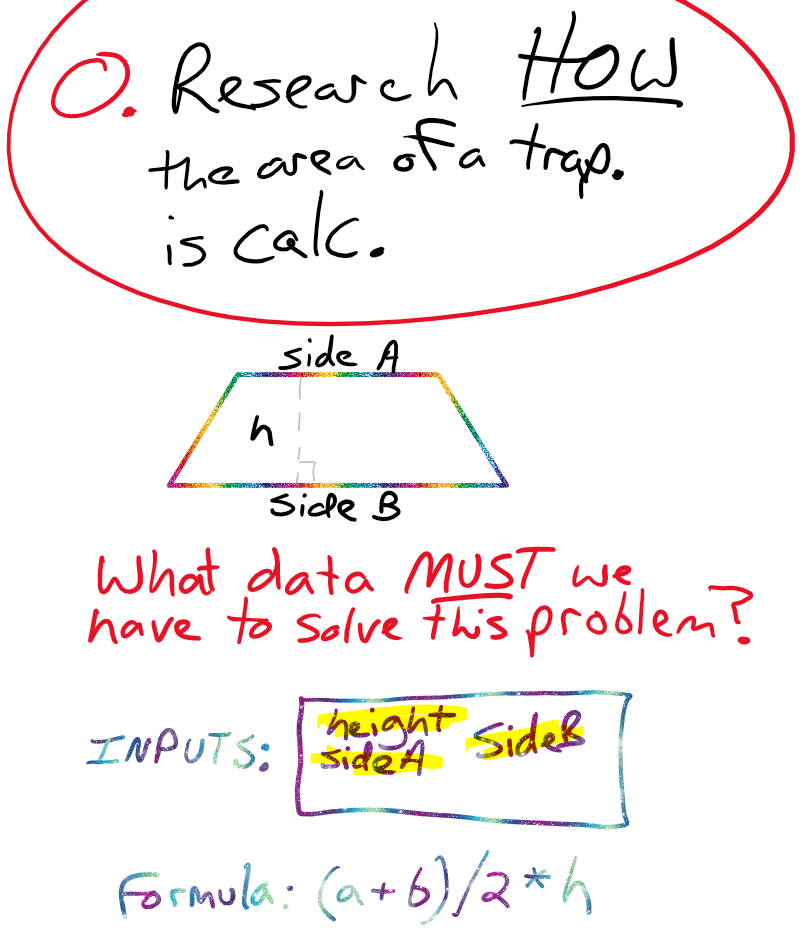 0. Research HOW
the area of a trap.
is calc.
side A
h
side B
What data MUST we
have to solve this problem?
INPUTS: height SideB
sideA
Formula: (a+b)/2*h